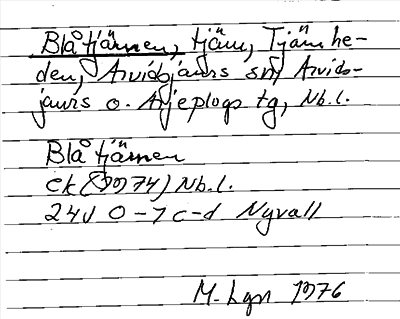 Blåtjärnen, tjärn, Tjärnhe-
den, Arvidsjaurs sn, Arvids-
jaurs o. Arjeplogs tg, Nb.l.
Blåtjärnen
Ek (1974) Nb.l.
24J 0-1 c-d Nyvall
M. Lgn 1976